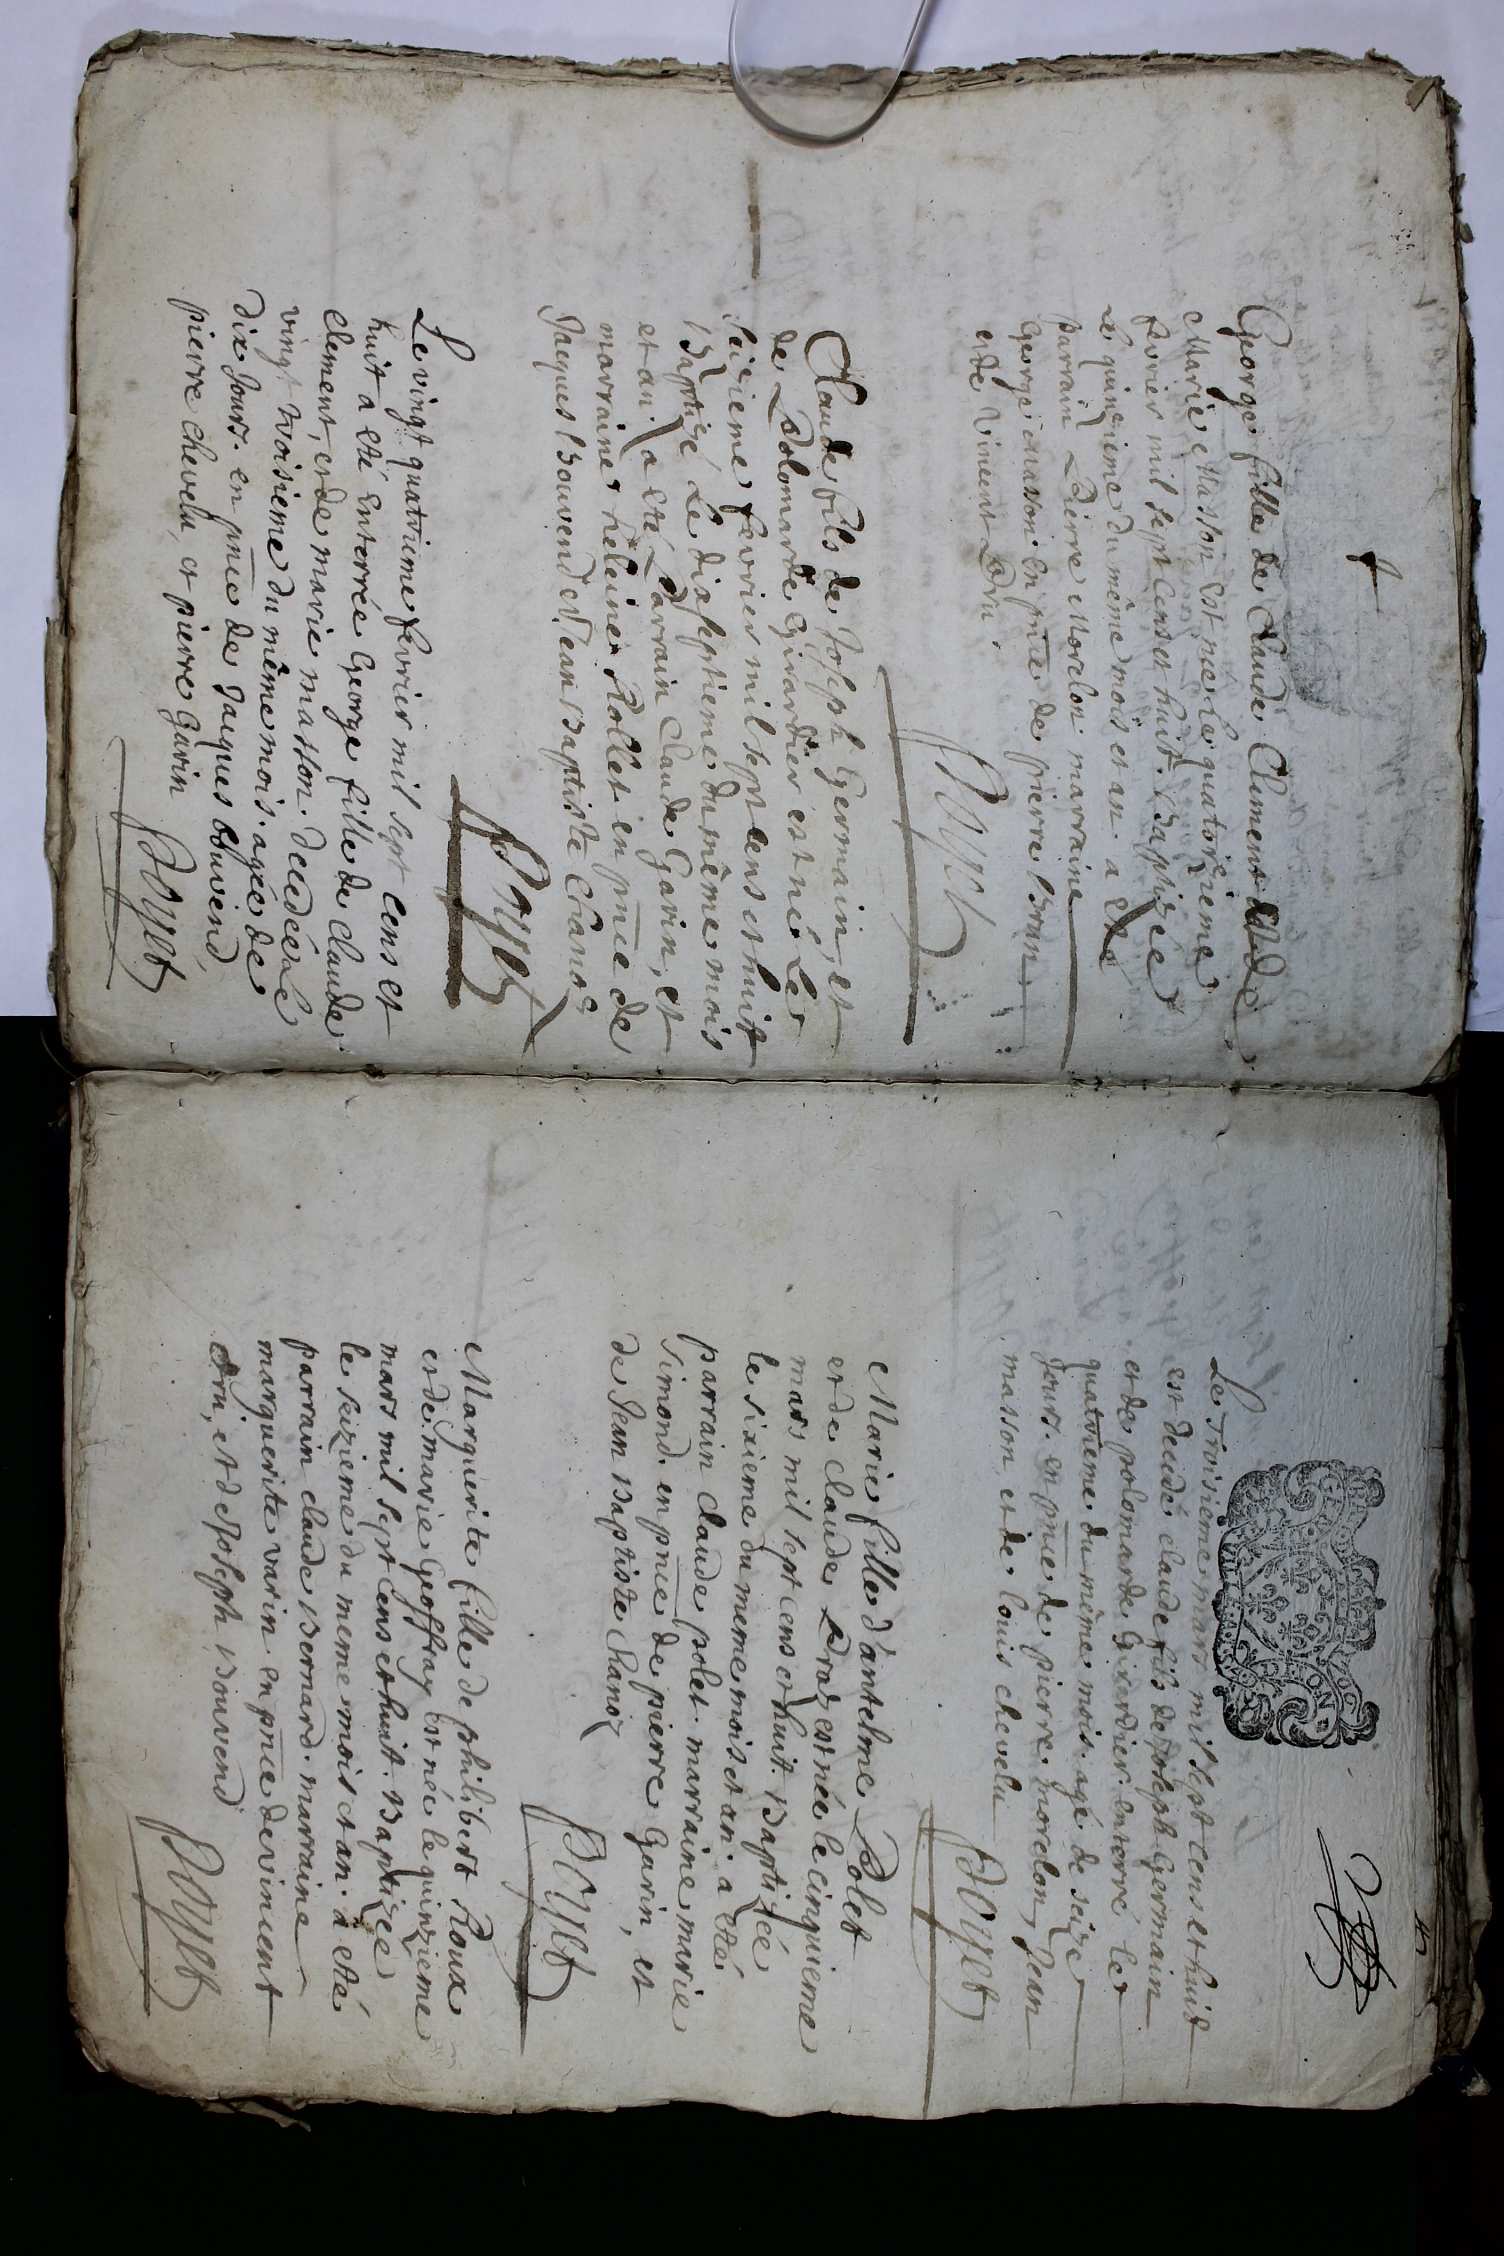 George fille de Claude Clement et de
Marie Masson est née le quatorzieme
fevrier mil sept cens et huit. Baptizée
le quinzieme du même mois et an. a eté
parrain Pierre Morelon marraine
George masson. en pnce de pierre Brun
et de Vincent Dru.
Poyet
Claude fils de Joseph Germain, et
de Polomarde Girardier est né le
Sizieme fevrier mil sept cens et huit
Baptizé le dixseptieme du même mois
et an. a eté Parrain Claude Garin, et
marraine heleine Rollet en pnce de
Jacques Bouvend et Jean Baptiste Chanoz
Poyet
Le vingt quatrieme fevrier mil sept cens et
huit a eté enterrée George fille de Claude
Clement, et de marie masson. decedée le
vingt troisieme du même mois. agée de
dix Jours. en pnce de Jacques Bouvend,
pierre chevelu, et pierre Garin
Poyet
5
GEN DE LION
Le troisieme mars mil sept cens et huit
est decedé claude fils de Joseph Germain
et de polomarde Girardier. enterré le
quatrieme du même mois. agé de seize
Jours. en pnce de pierre morelon, Jean
masson, et de louis chevelu
Poyet
Marie fille d'antelme Polet
et de claude Proz est née le cinquieme
mars mil sept cens et huit. Baptizée
le sixieme du meme mois et an. a eté
parrain claude polet. marraine marie
Simond. en pnce de pierre Garin, et
de Jean Baptiste chanoz
Poyet
Marguerite fille de philibert Roux
et de marie Geoffray est née le quinzieme
mars mil sept cens et huit. Baptizée
le seizieme du meme mois et an. a eté
parrain claude Bernard. marraine
marguerite varin. en pnce de vincent
dru, et de Joseph Bouvend
Poyet